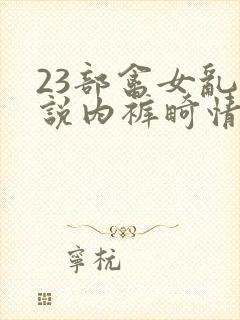 23部畲女乱
説内裤畸情
寧杭